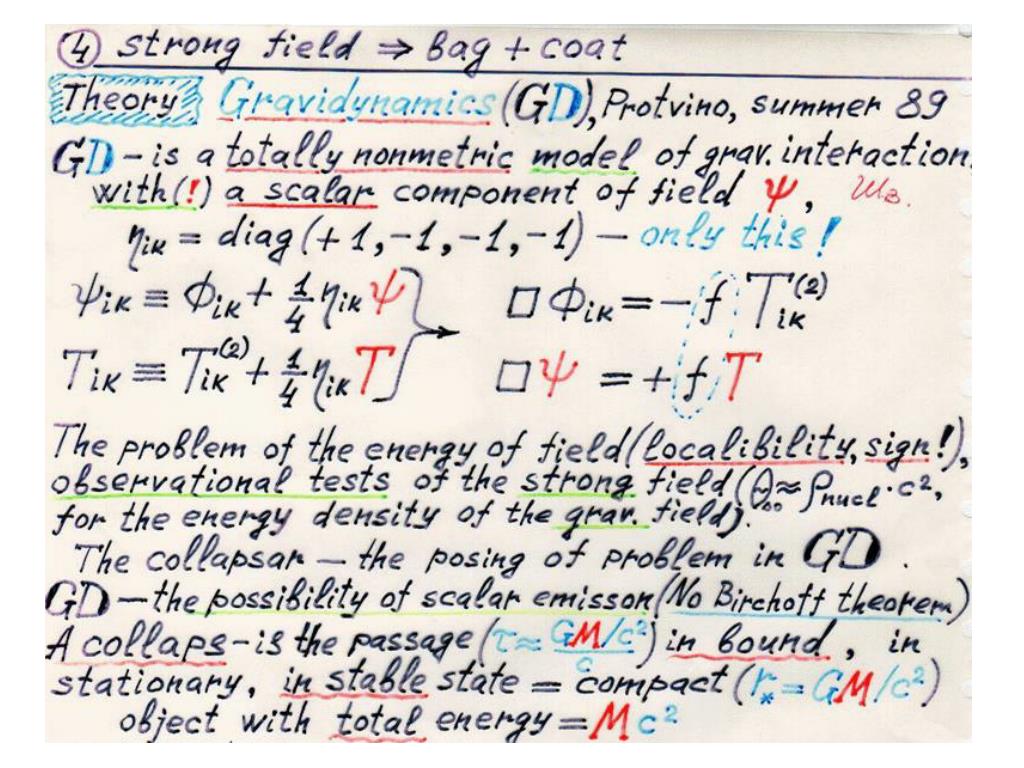 ④ strong field ⇒ bag + coat
Theory Gravidynamics (GD), Protvino, summer 89
GD – is a totally nonmetric model of grav. interaction
with (!) a scalar component of field ψ,
ηik = diag (+1, -1, -1, -1) – only this!
ψik ≡ Φik + 1/4 ηik ψ □ Φik = - f Tik(2)
Tik ≡ Tik(2) + 1/4 ηik T □ ψ = + f T
The problem of the energy of field (localibility, sign!),
observational tests of the strong field (θ₀₀ ≈ ρnucl · c²,
for the energy density of the grav. field).
The collapsar – the posing of problem in GD.
GD – the possibility of scalar emisson (No Birchoff theorem)
A collaps – is the passage (τ ≈ GM/c²/c) in bound, in
stationary, in stable state = compact (r* = GM/c²)
object with total energy = Mc²